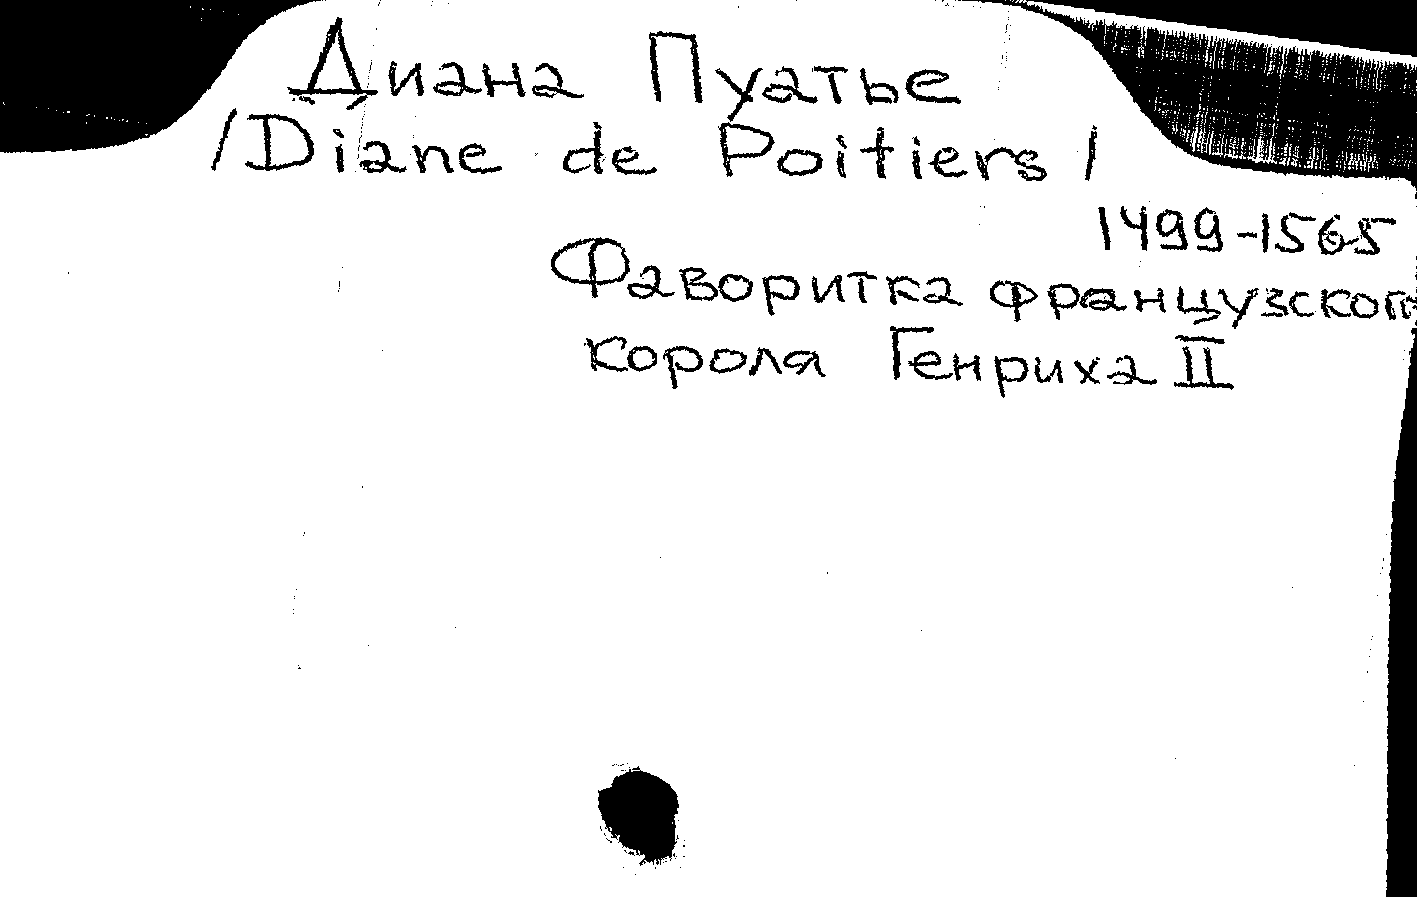 Диана Пуатье
/Diane de Poitiers/
1499-1565
Фаворитка французского
короля Генриха II